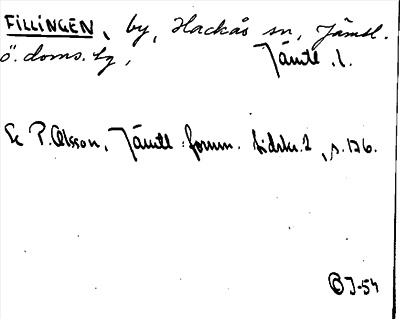 FILLINGEN, by, Hackås sn, Jämtl.
ö. doms. lg, Jämtl. l.
Se P. Olsson, Jämtl. fornm. tidskr. 2, s. 176.
BJ-54